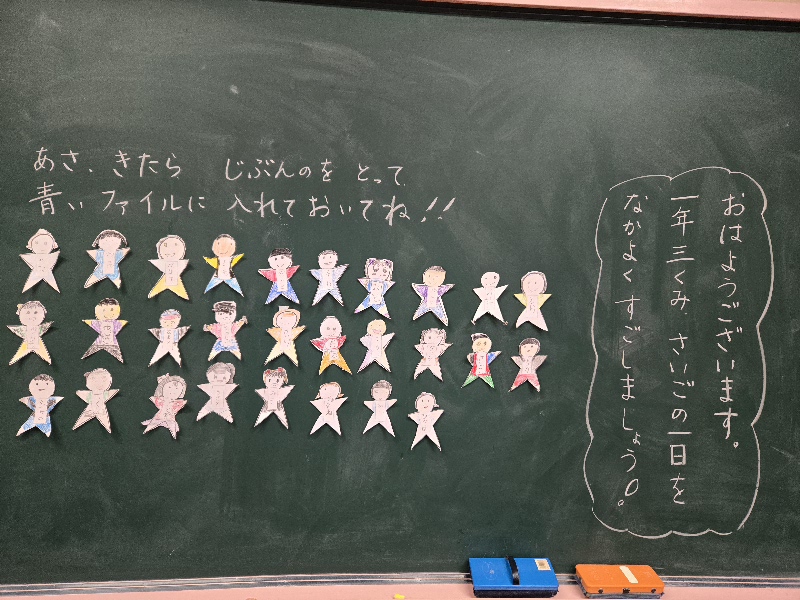 あさ、きたら じぶんのを とって、
青い ファイルに 入れておいてね!!
おはようございます。
一年三くみ、さいごの一日を
なかよくすごしましょう!。